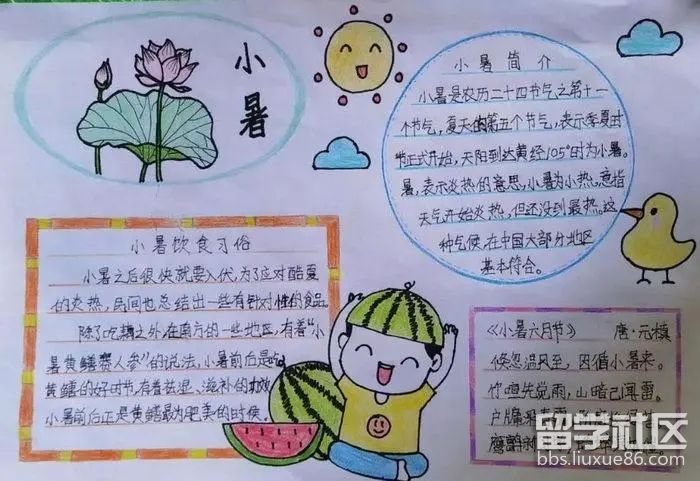 小暑
小暑简介
小暑是农历二十四节气之第十一
个节气,夏天的第五个节气,表示季夏时
节正式开始,天阳到达黄经105°时为小暑。
暑,表示炎热的意思,小暑为小热,意指
天气开始炎热,但还没到最热。这
种气候,在中国大部分地区
基本符合。
小暑饮食习俗
小暑之后很快就要入伏,为了应对酷夏
的炎热,民间也总结出一些有针对性的食品。
除了吃藕之外,在南方的一些地区,有着“小
暑黄鳝赛人参”的说法,小暑前后是吃
黄鳝的好时节,有着祛湿、滋补的功效
小暑前后正是黄鳝最为肥美的时候。
《小暑六月节》 唐·元稹
倏忽温风至,因循小暑来。
竹喧先觉雨,山暗已闻雷。
户牖深青
鹰鹯新
留学社区
bbs.liuxue86.com